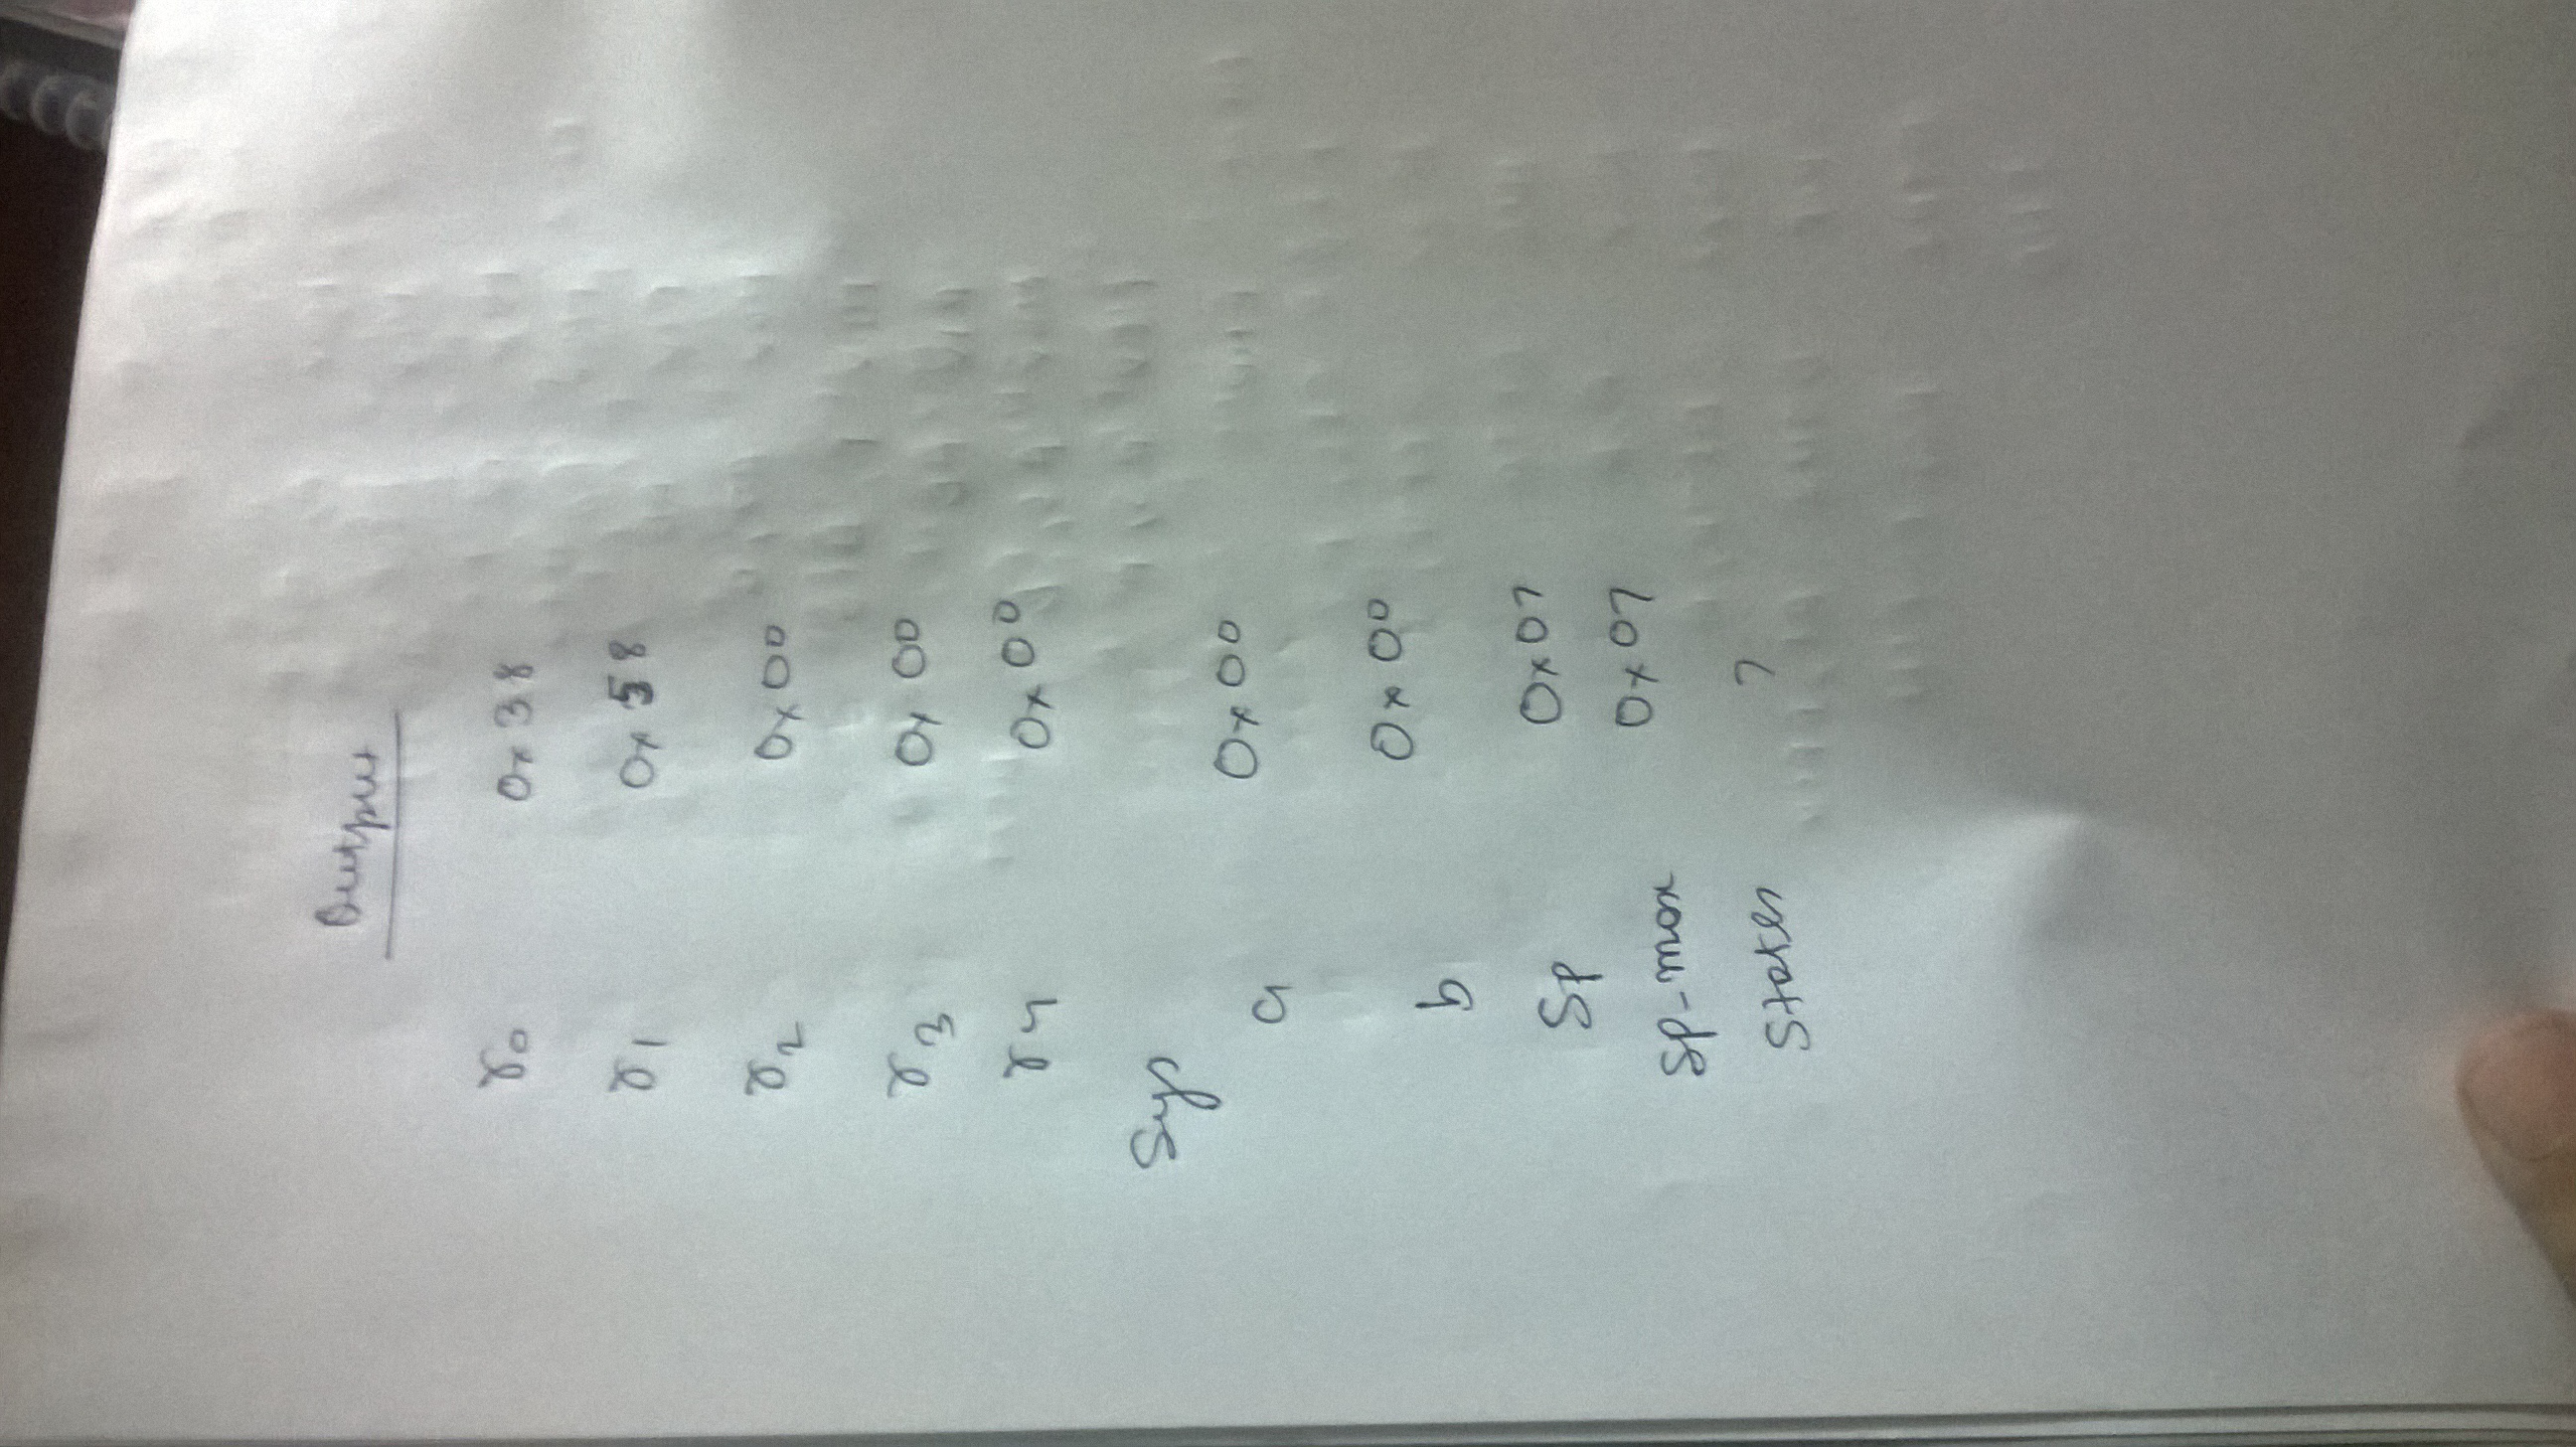 Output
r0 0x38
r1 0x58
r2 0x00
r3 0x00
r4 0x00
Sys
a 0x00
b 0x00
SP 0x07
SP-max 0x07
States 7